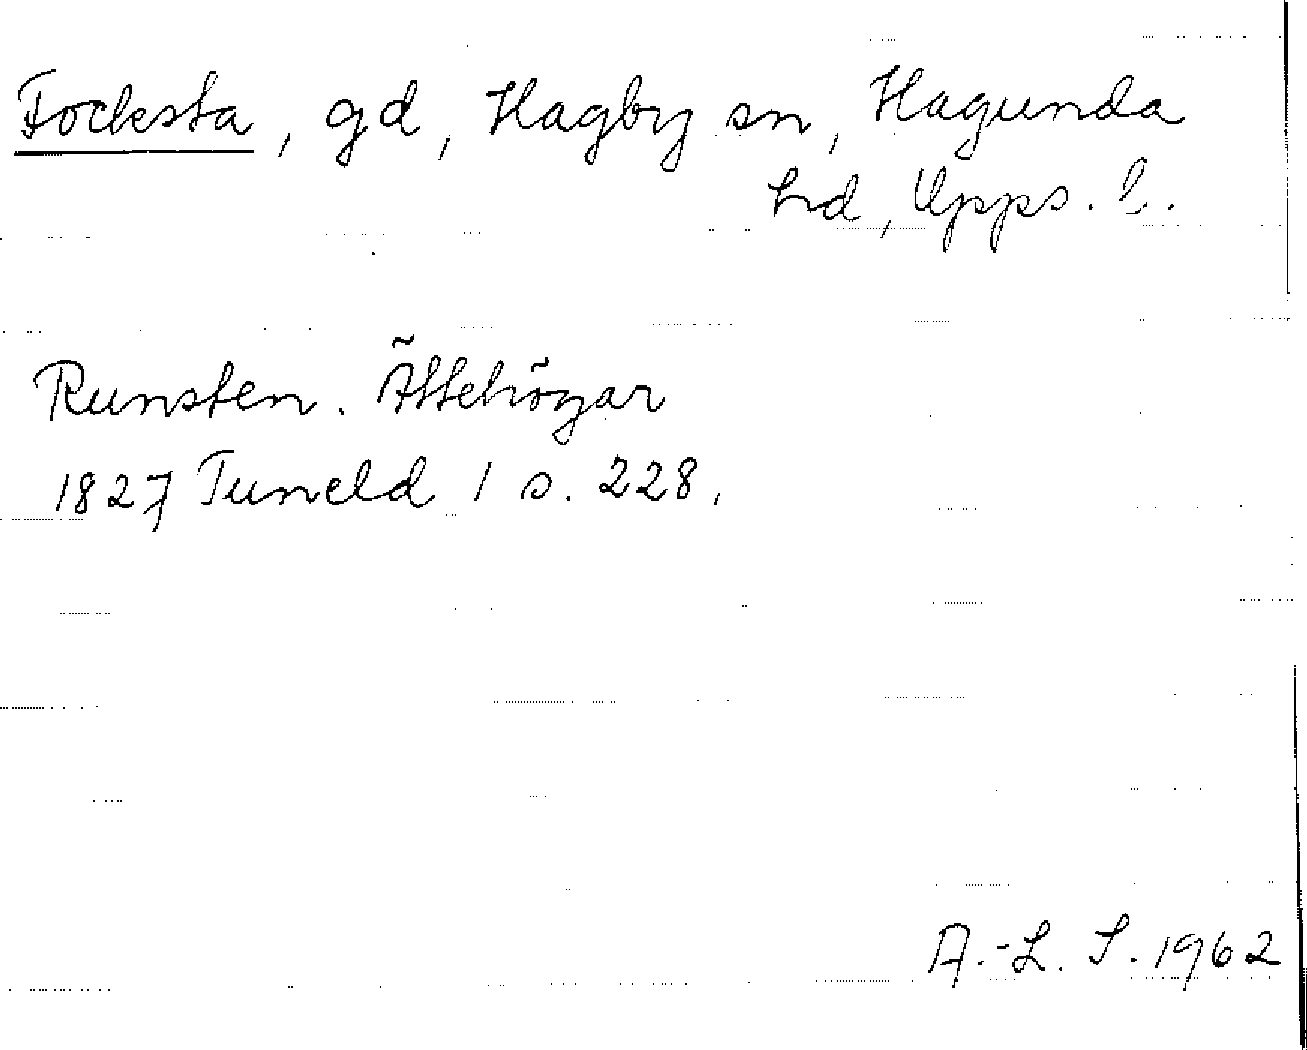 Focksta, gd, Hagby sn, Hagunda
hd, Upps. l.
Runsten. Ättehögar
1827 Tuneld 1 s. 228.
A.-L. S. 1962